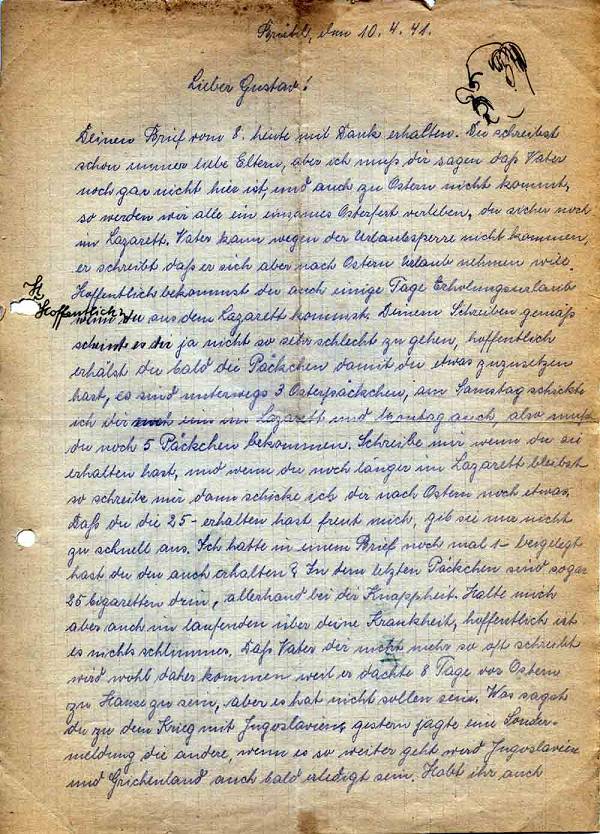 den 10.4.41.
Lieber Gustav!
Deinen Brief vom 8. heute mit Dank erhalten. Du schreibst
schon immer liebe Eltern, aber ich muß dir sagen daß Vater
noch gar nicht hier ist, und auch zu Ostern nicht kommt,
so werden wir alle ein einsames Osterfest verleben, du sicher noch
im Lazarett, Vater kann wegen der Urlaubsperre nicht kommen,
er schreibt daß er sich aber nach Ostern Urlaub nehmen will.
Hoffentlich bekommst du auch einige Tage Erholungsurlaub
Hoffentlich
wenn du aus dem Lazarett kommst. Deinem Schreiben gemäß
scheint es dir ja nicht so sehr schlecht zu gehen, hoffentlich
erhälst du bald die Päckchen damit du etwas zuzusetzen
hast, es sind unterwegs 3 Osterpäckchen, am Samstag schickte
ich dir noch eins ins Lazarett und Montag auch, also mußt
du noch 5 Päckchen bekommen. Schreibe mir wenn du sie
erhalten hast, und wenn du noch länger im Lazarett bleibst
so schreibe mir dann schicke ich dir nach Ostern noch etwas.
Daß du die 25- erhalten hast freut mich, gib sie nur nicht
zu schnell aus. Ich hatte in einem Brief noch mal 1- beigelegt
hast du den auch erhalten? In dem letzten Päckchen sind sogar
25 Cigaretten drin, allerhand bei der Knappheit. Halte mich
aber auch im laufenden über deine Krankheit, hoffentlich ist
es nichts schlimmes. Daß Vater dir nicht mehr so oft schreibt
wird wohl daher kommen weil er dachte 8 Tage vor Ostern
zu Hause zu sein, aber es hat nicht sollen sein. Was sagst
du zu dem Krieg mit Jugoslavien, gestern jagte eine Sonder-
meldung die andere, wenn es so weiter geht wird Jugoslavien
und Grichenland auch bald erledigt sein. Habt ihr auch